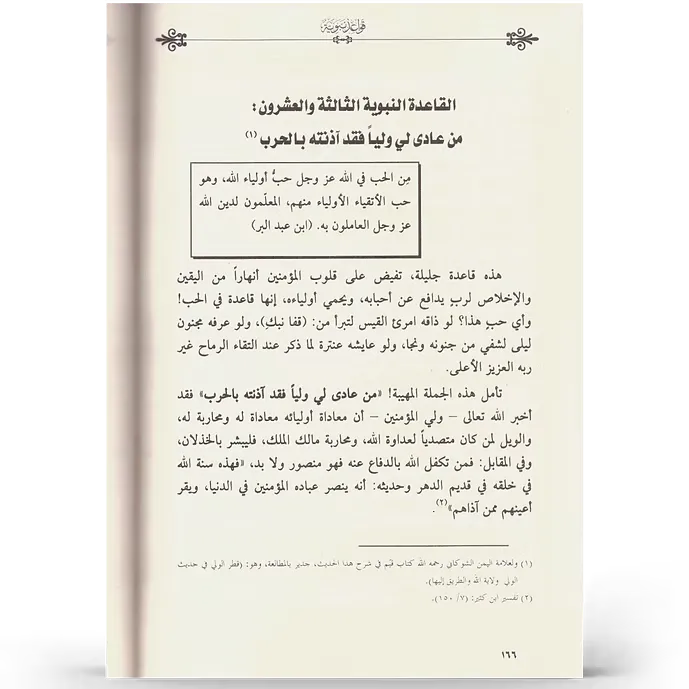 قواعد نبوية
القاعدة النبوية الثالثة والعشرون:
من عادى لي ولياً فقد آذنته بالحرب (١)
مِن الحب في الله عز وجل حبُّ أولياء الله، وهو
حب الأتقياء الأولياء منهم، المعلّمون لدين الله
عز وجل العاملون به. (ابن عبد البر)
هذه قاعدة جليلة، تفيض على قلوب المؤمنين أنهاراً من اليقين
والإخلاص لربٍ يدافع عن أحبابه، ويحمي أولياءه، إنها قاعدة في الحب!
وأي حبٍ هذا؟ لو ذاقه امرئ القيس لتبرأ من: (قفا نبكِ)، ولو عرفه مجنون
ليلى لشفي من جنونه ونجا، ولو عايشه عنترة لما ذكر عند التقاء الرماح غير
ربه العزيز الأعلى.
تأمل هذه الجملة المهيبة! «من عادى لي ولياً فقد آذنته بالحرب» فقد
أخبر الله تعالى – ولي المؤمنين – أن معاداة أوليائه معاداة له ومحاربة له،
والويل لمن كان متصدياً لعداوة الله، ومحاربة مالك الملك، فليبشر بالخذلان،
وفي المقابل: فمن تكفل الله بالدفاع عنه فهو منصور ولا بد، «فهذه سنة الله
في خلقه في قديم الدهر وحديثه: أنه ينصر عباده المؤمنين في الدنيا، ويقر
أعينهم ممن آذاهم»(٢).
(١) ولعلامة اليمن الشوكاني رحمه الله كتاب قيّم في شرح هذا الحديث، جدير بالمطالعة، وهو: (قطر الولي في حديث
الولي ولاية الله والطريق إليها).
(٢) تفسير ابن كثير: (٧/ ١٥٠).
١٦٦